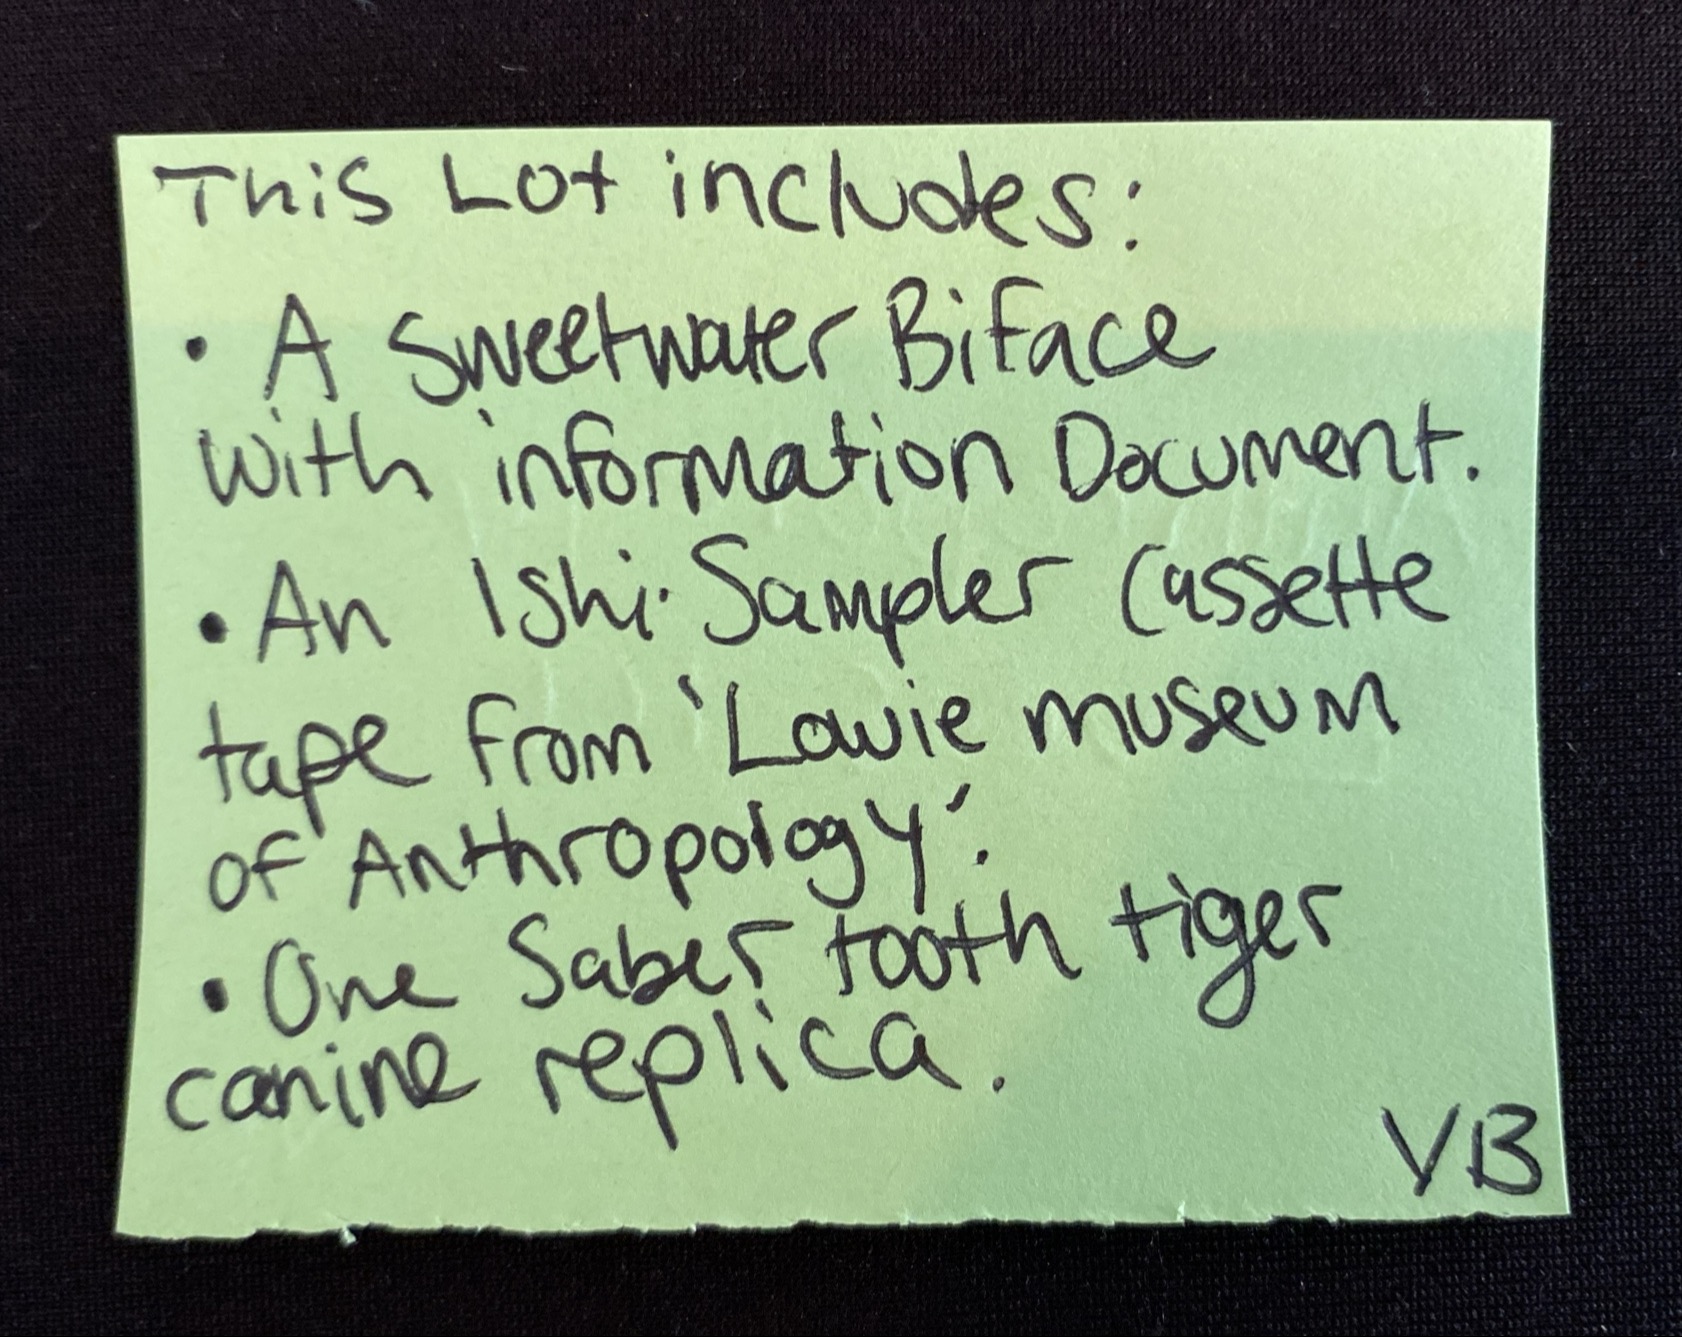 This Lot includes:
• A Sweetwater Biface
with information Document.
• An Ishi Sampler Cassette
tape from 'Lowie museum
of Anthropology'.
• One Saber tooth tiger
canine replica.
VB